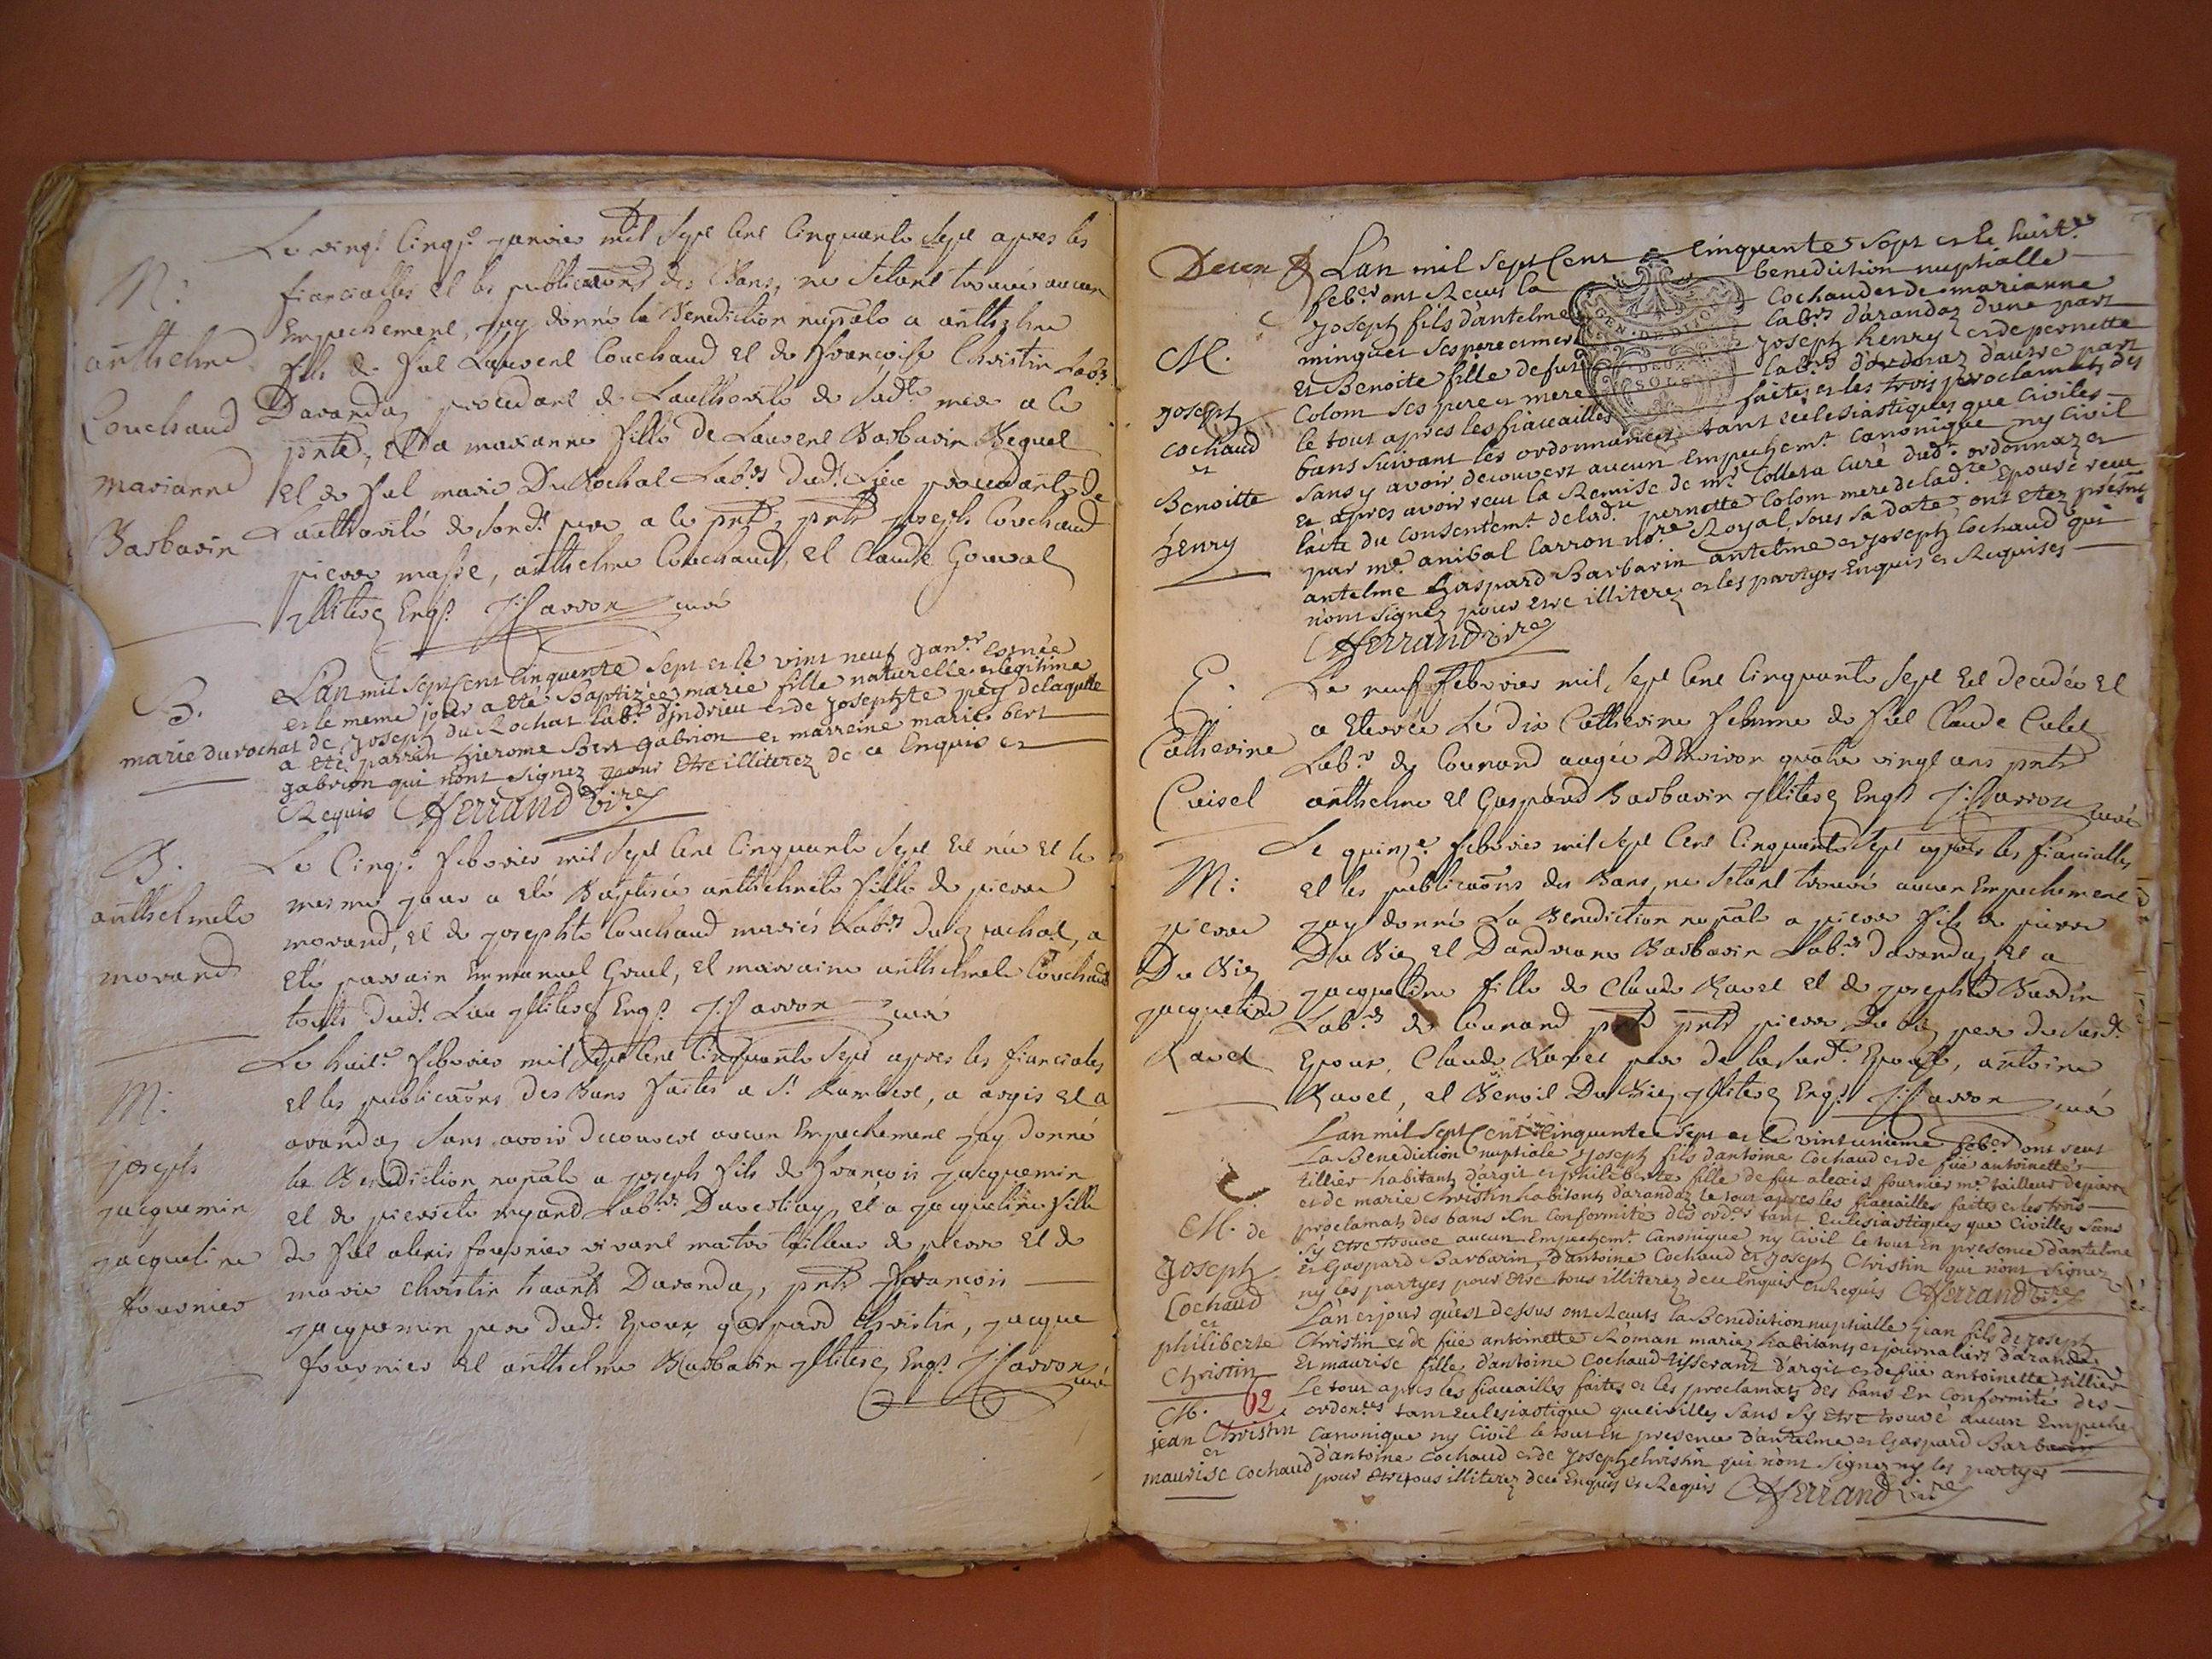 Le vingt cinq.e janvier mil sept cent cinquante sept apres les
M:
fiancialles et les publications des Bans, ne setant trouvé aucun
Empechement, jay donné la Benediction nup.ale a anthelme
anthelme
fils de feu Laurent Couchaud et de françoise Christin Lab.rs
Couchaud
Darandaz procedant de Lauthorité de sad.te mere a ce
pnte, et a marianne fille de Laurent Barbarin
marianne
et de feu marie Du Rochat Lab.rs dud.t Lieu procedante de
Barbarin
Lauthorité de sond.t pere a ce pnt, pnts joseph Couchaud
pierre masse, anthelme Couchaud, et Claude
jlliterez Enq.s J: Carron curé
L'an mil sept cent cinquente sept et le vint neuf jan.er est née
B.
et le meme jour a eté Baptizée marie fille naturelle et legitime
marie du rochat
de joseph du Rochat lab.r d'jndrieu et de josephte pey delaquelle
a eté parrin hierome Bert gabrion et marreine marie bert
gabrion qui n'ont signez pour etre illiterez de ce Enquis et
Requis Ferrand vi.re
B.
Le Cinq.e febvrier mil sept cent Cinquante sept est née et le
mesme jour a eté Baptisée anthelmete fille de pierre
anthelmete
morand, et de josephte Couchaud mariés Lab.rs du rachat, a
morand
eté parrain Emmanuel Gruel, et marraine anthelmete Couchaud
touts dud.t Lieu jlliterez Enq.s J: Carron curé
Le huit.e febvrier mil sept cent Cinquante sept apres les fiancialles
M:
et les publications des Bans faites a St. Rambert, a argis et a
arandaz sans avoir decouvert aucun Empechement jay donné
joseph
la Benediction nup.ale a joseph fils de françois jacquemin
jacquemin
et de pierrete myand Lab.rs, et a jacqueline fille
jacqueline
de feu alexis fournier vivant maitre tailleur de pierre et de
fournier
marie Christin haants Darandaz, pnts françois
jacquemin pere dud.t Epoux gaspard Christin, jacque
fournier et anthelme Barbarin jlliterez Enq.s J: Carron curé
L'an mil sept cent cinquente sept et le huit.e
feb.er ont Receus la benediction nuptialle
GEN. DE DIJON
DEUX SOLS
joseph fils d'antelme Cochaud et de marianne
M.
minguet ses pere et mere lab.rs d'arandaz d'une part
et Benoite fille de fut joseph henry et de pernette
joseph
Colom ses pere et mere lab.rs d'ordonaz d'autre part
cochaud
le tout apres les fiancailles faites et les trois proclamats des
et
bans suivant les ordonnances tant ecclesiastiques que Civiles
Benoitte
sans y avoir decouvert aucun Empechem.t Canonique ny Civil
henry
et apres avoir reeu la Remise de m.r Colleta Curé dud.t ordonnaz et
l'acte du consentem.t delad.te pernette Colom mere de lad.te Epouse receu
par m.e anibal Carron no.re Royal, sous sa date, ont etez presens
antelme gaspard Barbarin antelme et joseph Cochaud qui
n'ont signez pour etre illiterez et les partyes Enquis et Requises
Ferrand vi.re
E.
Le neuf febvrier mil sept cent Cinquante sept est decedée et
Catherine
a Eterrée Le dix Catherine femme de feu Claude Culet
Cuisel
Lab.r de Counand aagée D'Environ quatre vingt ans pnts
anthelme et Gaspard Barbarin jlliterez Enq.s J: Carron curé
Le quinz.e febvrier mil sept cent Cinquante sept apres les fiancialles
M:
et les publications des Bans, ne setant trouvé aucun Empechement
pierre
jay donné La Benediction nup.ale a pierre fils de pierre
Du Biez
Du Biez et Dandreane Barbarin Lab.rs darandaz et a
jacqueline
jacqueline fille de Claude Ravet et de josephte Bardin
Lab.rs de Counand pnts pierre Du biez pere du susd.t
Ravet
Epoux, Claude Ravet pere de la susd.te Epouse, antoine
Ravet, et Benoit Du Biez jlliterez Enq.s J: Carron curé
L'an mil sept cent cinquente sept et le vint unieme feb.er ont reeus
La Benediction nuptiale joseph fils d'antoine Cochaud et de füe antoinette
tillier habitant d'argit et philiberte fille de fu alexis fournier m.e tailleur de pierre
et de marie Christin habitants d'arandaz le tout apres les fiancailles faites et les trois
M. de
proclamats des bans En Conformité des ord.es tant eclesiastiques que Civilles sans
joseph
s'y etre trouvé aucun Empechem.t Canonique ny Civil le tout En presence d'antelme
et gaspard Barbarin, d'antoine Cochaud et joseph Christin qui n'ont signez
Cochaud
ny les partyes pour etre tous illiterez de ce Enquis et Requis Ferrand vi.re
et
L'an et jour qu'est dessus ont Reeuts la Benediction nuptialle jean fils de joseph
philiberte
Christin et de füe antoinette Roman mariez habitants et journaliers d'arandaz
Christin
et maurise fille d'antoine Cochaud tisserant d'argit et de füe antoinette tillier
M. 62
Le tout apres les fiancailles faites et les proclamats des bans En Conformité des
jean Christin
orden.ces tant eclesiastique que civilles sans s'y etre trouvé aucun Empeche
et
Canonique ny Civil le tout En presence d'antelme et gaspard Barbarin
maurise cochaud
d'antoine Cochaud et de joseph christin qui n'ont signez ny les partyes
pour etre tous illiterez de ce Enquis et Requis Ferrand vi.re